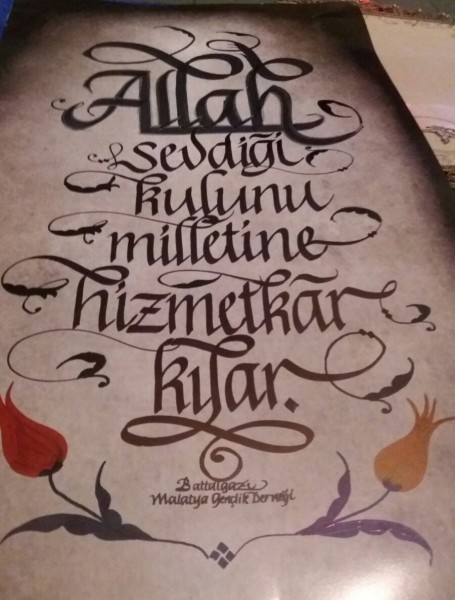 Allah
sevdiği
kulunu
milletine
hizmetkār
kılar.
Battalgazi
Malatya Gençlik Derneği